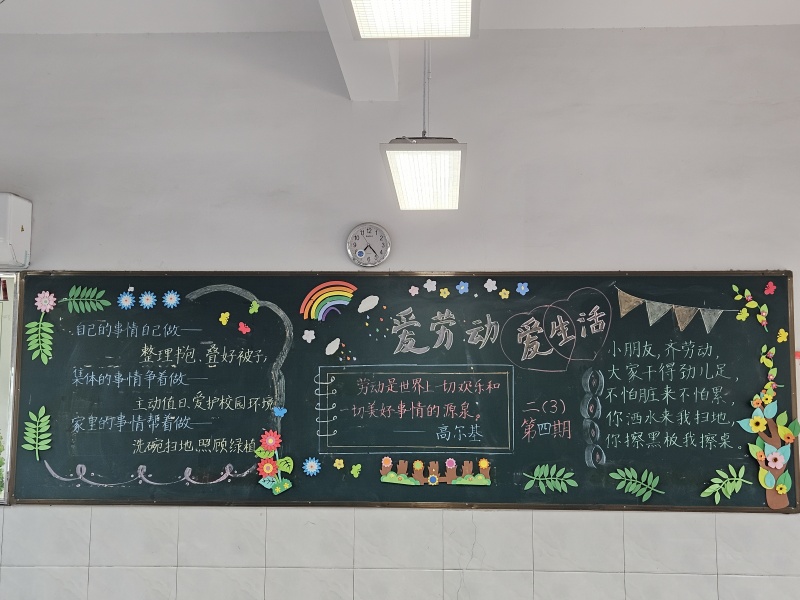 自己的事情自己做——
整理书包、叠好被子;
集体的事情争着做——
主动值日、爱护校园环境
家里的事情帮着做——
洗碗扫地、照顾绿植
爱劳动 爱生活
劳动是世界上一切欢乐和
一切美好事情的源泉。
——高尔基
二(3)
第四期
小朋友,齐劳动,
大家干得劲儿足,
不怕脏来不怕累,
你洒水来我扫地,
你擦黑板我擦桌。